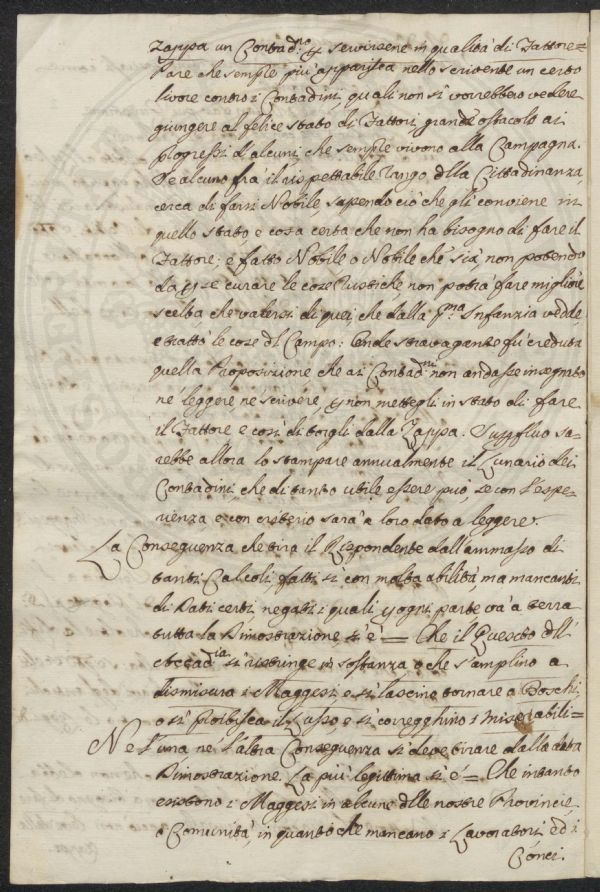 Zappa un Contad.no p servirsene in qualità di Fattore=
Pare che sempre più apparisca nello scrivente un certo
livore contro i Contadini, quali non si vorrebbero vedere
giungere al felice stato di Fattori, grande ostacolo ai
progressi d'alcuni che sempre vivono alla Campagna.
Se alcuno fra il rispettabile rango dlla Cittadinanza,
cerca di farsi Nobile, sapendo ciò che gli conviene in
quello stato, è cosa certa che non ha bisogno di fare il
Fattore; e fatto Nobile o Nobile che sia, non potendo
da p se curare le cose Rustiche non potrà fare migliore
scelta che valersi di quei, che dalla p.ma Infanzia vedde,
e trattò le cose dl Campo: onde stravagante fù creduta
quella Proposizione che ai Contad.ni non andasse insegnato
nè leggere, nè scrivere, p non mettegli in stato di fare
il Fattore, e così di torgli dalla Zappa. Supfluo sa=
rebbe allora lo stampare annualmente il Lunario dei
Contadini, che di tanto utile essere può, se con l'espe=
rienza, e con criterio sarà a loro dato a leggere.
La Conseguenza che tira il Rispondente dall'ammasso di
tanti Calcoli fatti si con molta abilità, ma mancanti
di Dati certi, negati i quali, p ogni parte và a terra
tutta la Dimostrazione, si è = Che il Quesito dll'
Accad.ia si ristringe in sostanza o che s'amplino a
dismisura i Maggesi, e si lascino tornare a Boschi,
o si proibisca il Lusso, e si corregghino i miserabili=
Ne l'una ne l'altra Conseguenza si deve tirare dalla data
Dimostrazione. La più legittima si è = Che intanto
esistono i Maggesi in alcune dlle nostre Provincie,
o Comunità, in quanto che mancano i Lavoratori ed i
Conci.